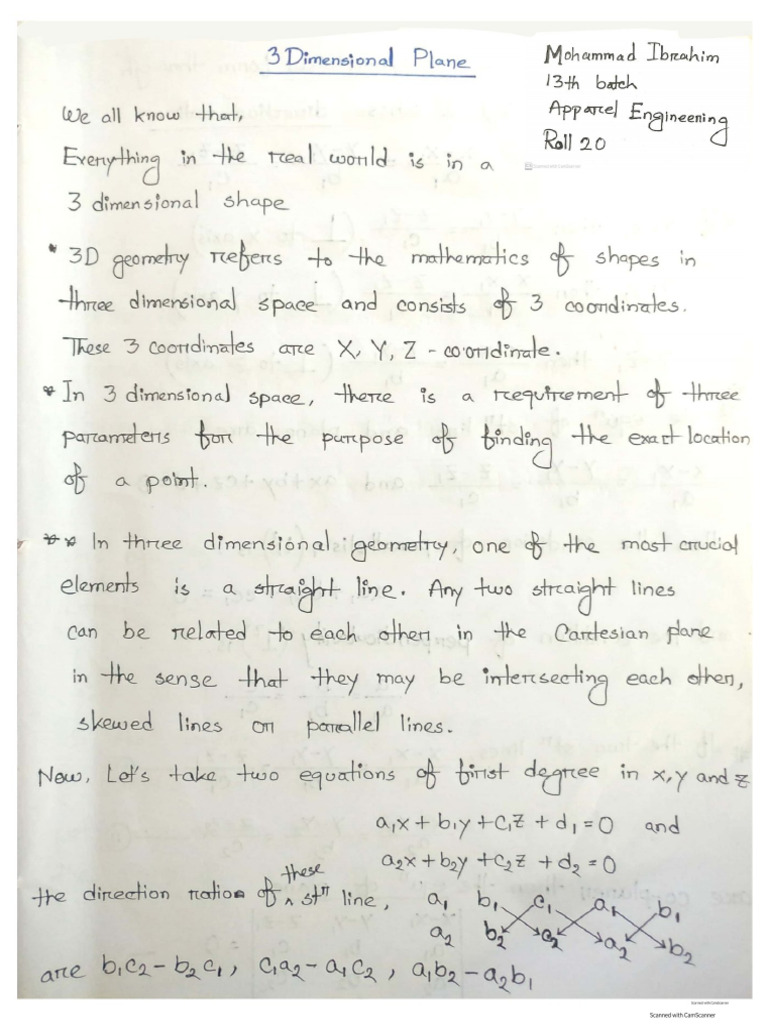 3 Dimensional Plane
Mohammad Ibrahim
13th batch
Apparel Engineering
Roll 20
Scanned with CamScanner
We all know that,
Everything in the real world is in a
3 dimensional shape
* 3D geometry refers to the mathematics of shapes in
three dimensional space and consists of 3 coordinates.
These 3 coordinates are X, Y, Z - coordinate.
* In 3 dimensional space, there is a requirement of three
parameters for the purpose of finding the exact location
of a point.
** In three dimensional geometry, one of the most crucial
elements is a straight line. Any two straight lines
can be related to each other in the Cartesian plane
in the sense that they may be intersecting each other,
skewed lines or parallel lines.
Now, Let's take two equations of first degree in x, y and z
a₁x + b₁y + c₁z + d₁ = 0 and
a₂x + b₂y + c₂z + d₂ = 0
the direction ration of these stⁿ line, a₁ b₁ c₁ a₁ b₁
a₂ b₂ c₂ a₂ b₂
are b₁c₂ - b₂c₁, c₁a₂ - a₁c₂, a₁b₂ - a₂b₁
Scanned with CamScanner
Scanned with CamScanner